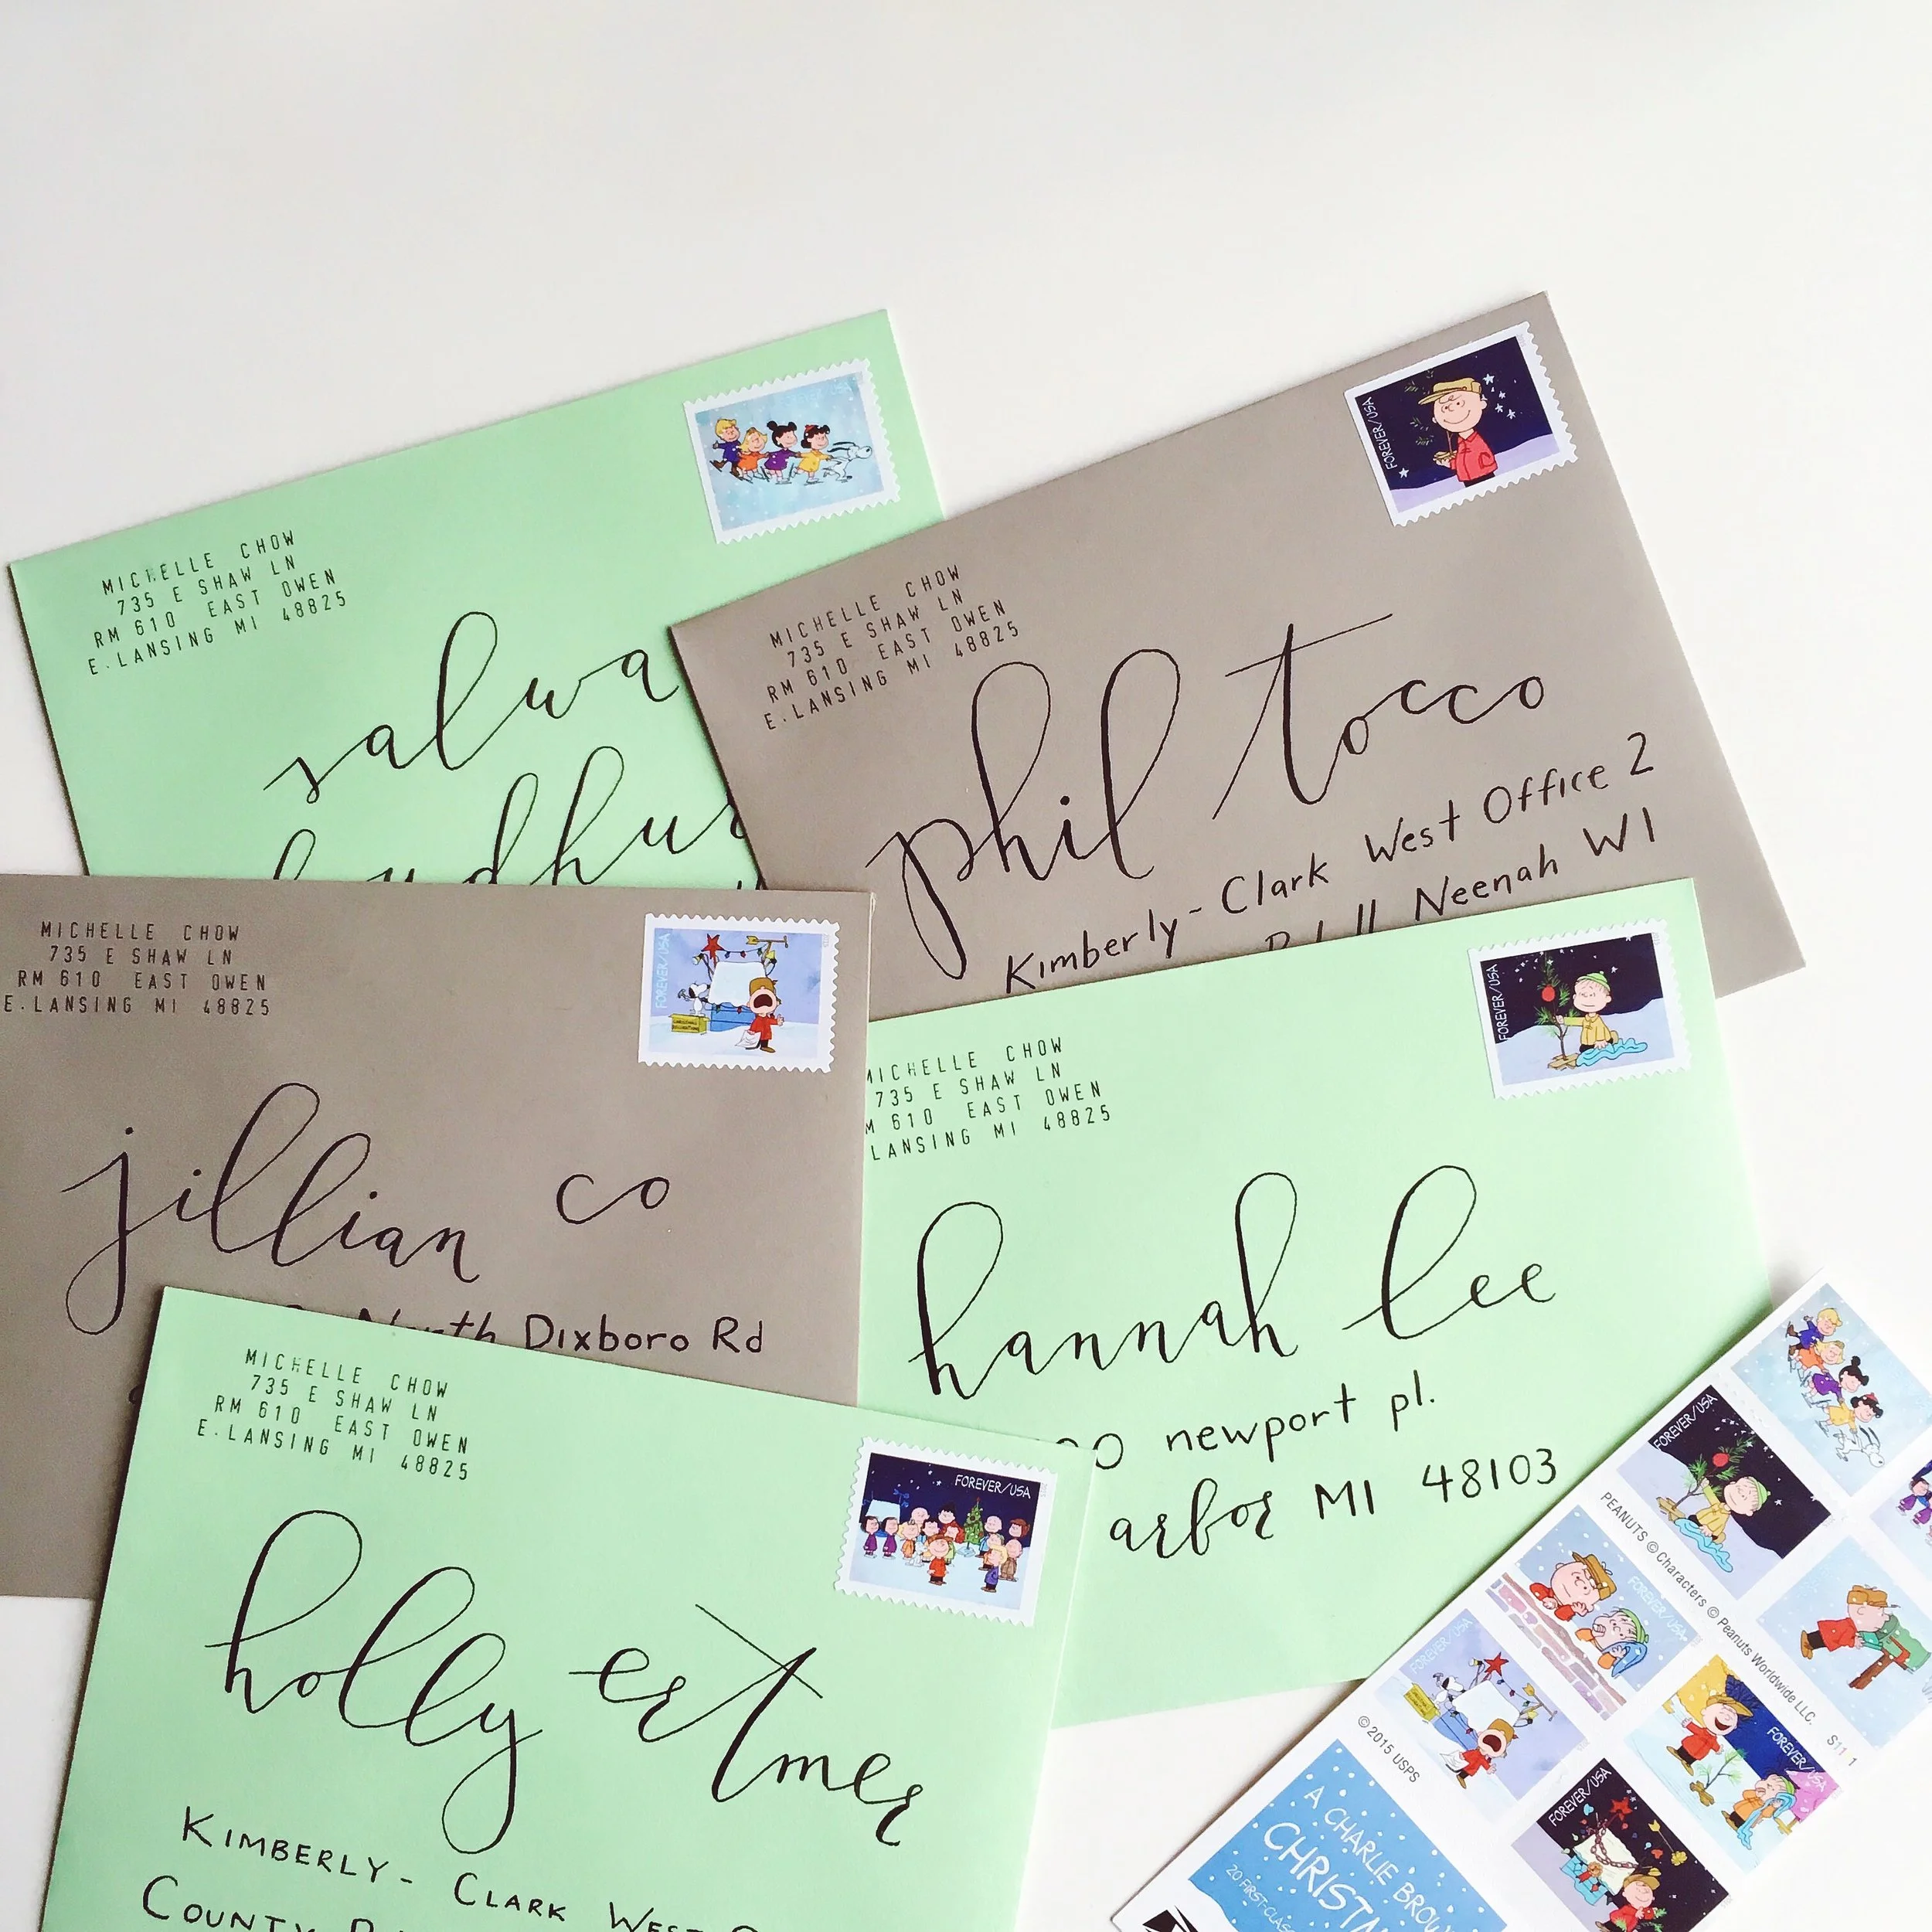 MICHELLE CHOW
735 E SHAW LN
RM 610 EAST OWEN
E.LANSING MI 48825
salwa
MICHELLE CHOW
735 E SHAW LN
RM 610 EAST OWEN
E.LANSING MI 48825
FOREVER/USA
phil tocco
Kimberly-Clark West Office 2
Neenah WI
MICHELLE CHOW
735 E SHAW LN
RM 610 EAST OWEN
E.LANSING MI 48825
FOREVER/USA
jillian co
North Dixboro Rd
MICHELLE CHOW
735 E SHAW LN
610 EAST OWEN
LANSING MI 48825
FOREVER/USA
hannah lee
newport pl.
arbor MI 48103
MICHELLE CHOW
735 E SHAW LN
RM 610 EAST OWEN
E.LANSING MI 48825
FOREVER/USA
holly ertmer
KIMBERLY-CLARK WEST
COUNTY
FOREVER/USA
PEANUTS © Characters © Peanuts Worldwide LLC.
FOREVER/USA
FOREVER/USA
© 2015 USPS
FOREVER/USA
FOREVER/USA
A CHARLIE BROWN
CHRISTMA
20 FIRST-CLAS